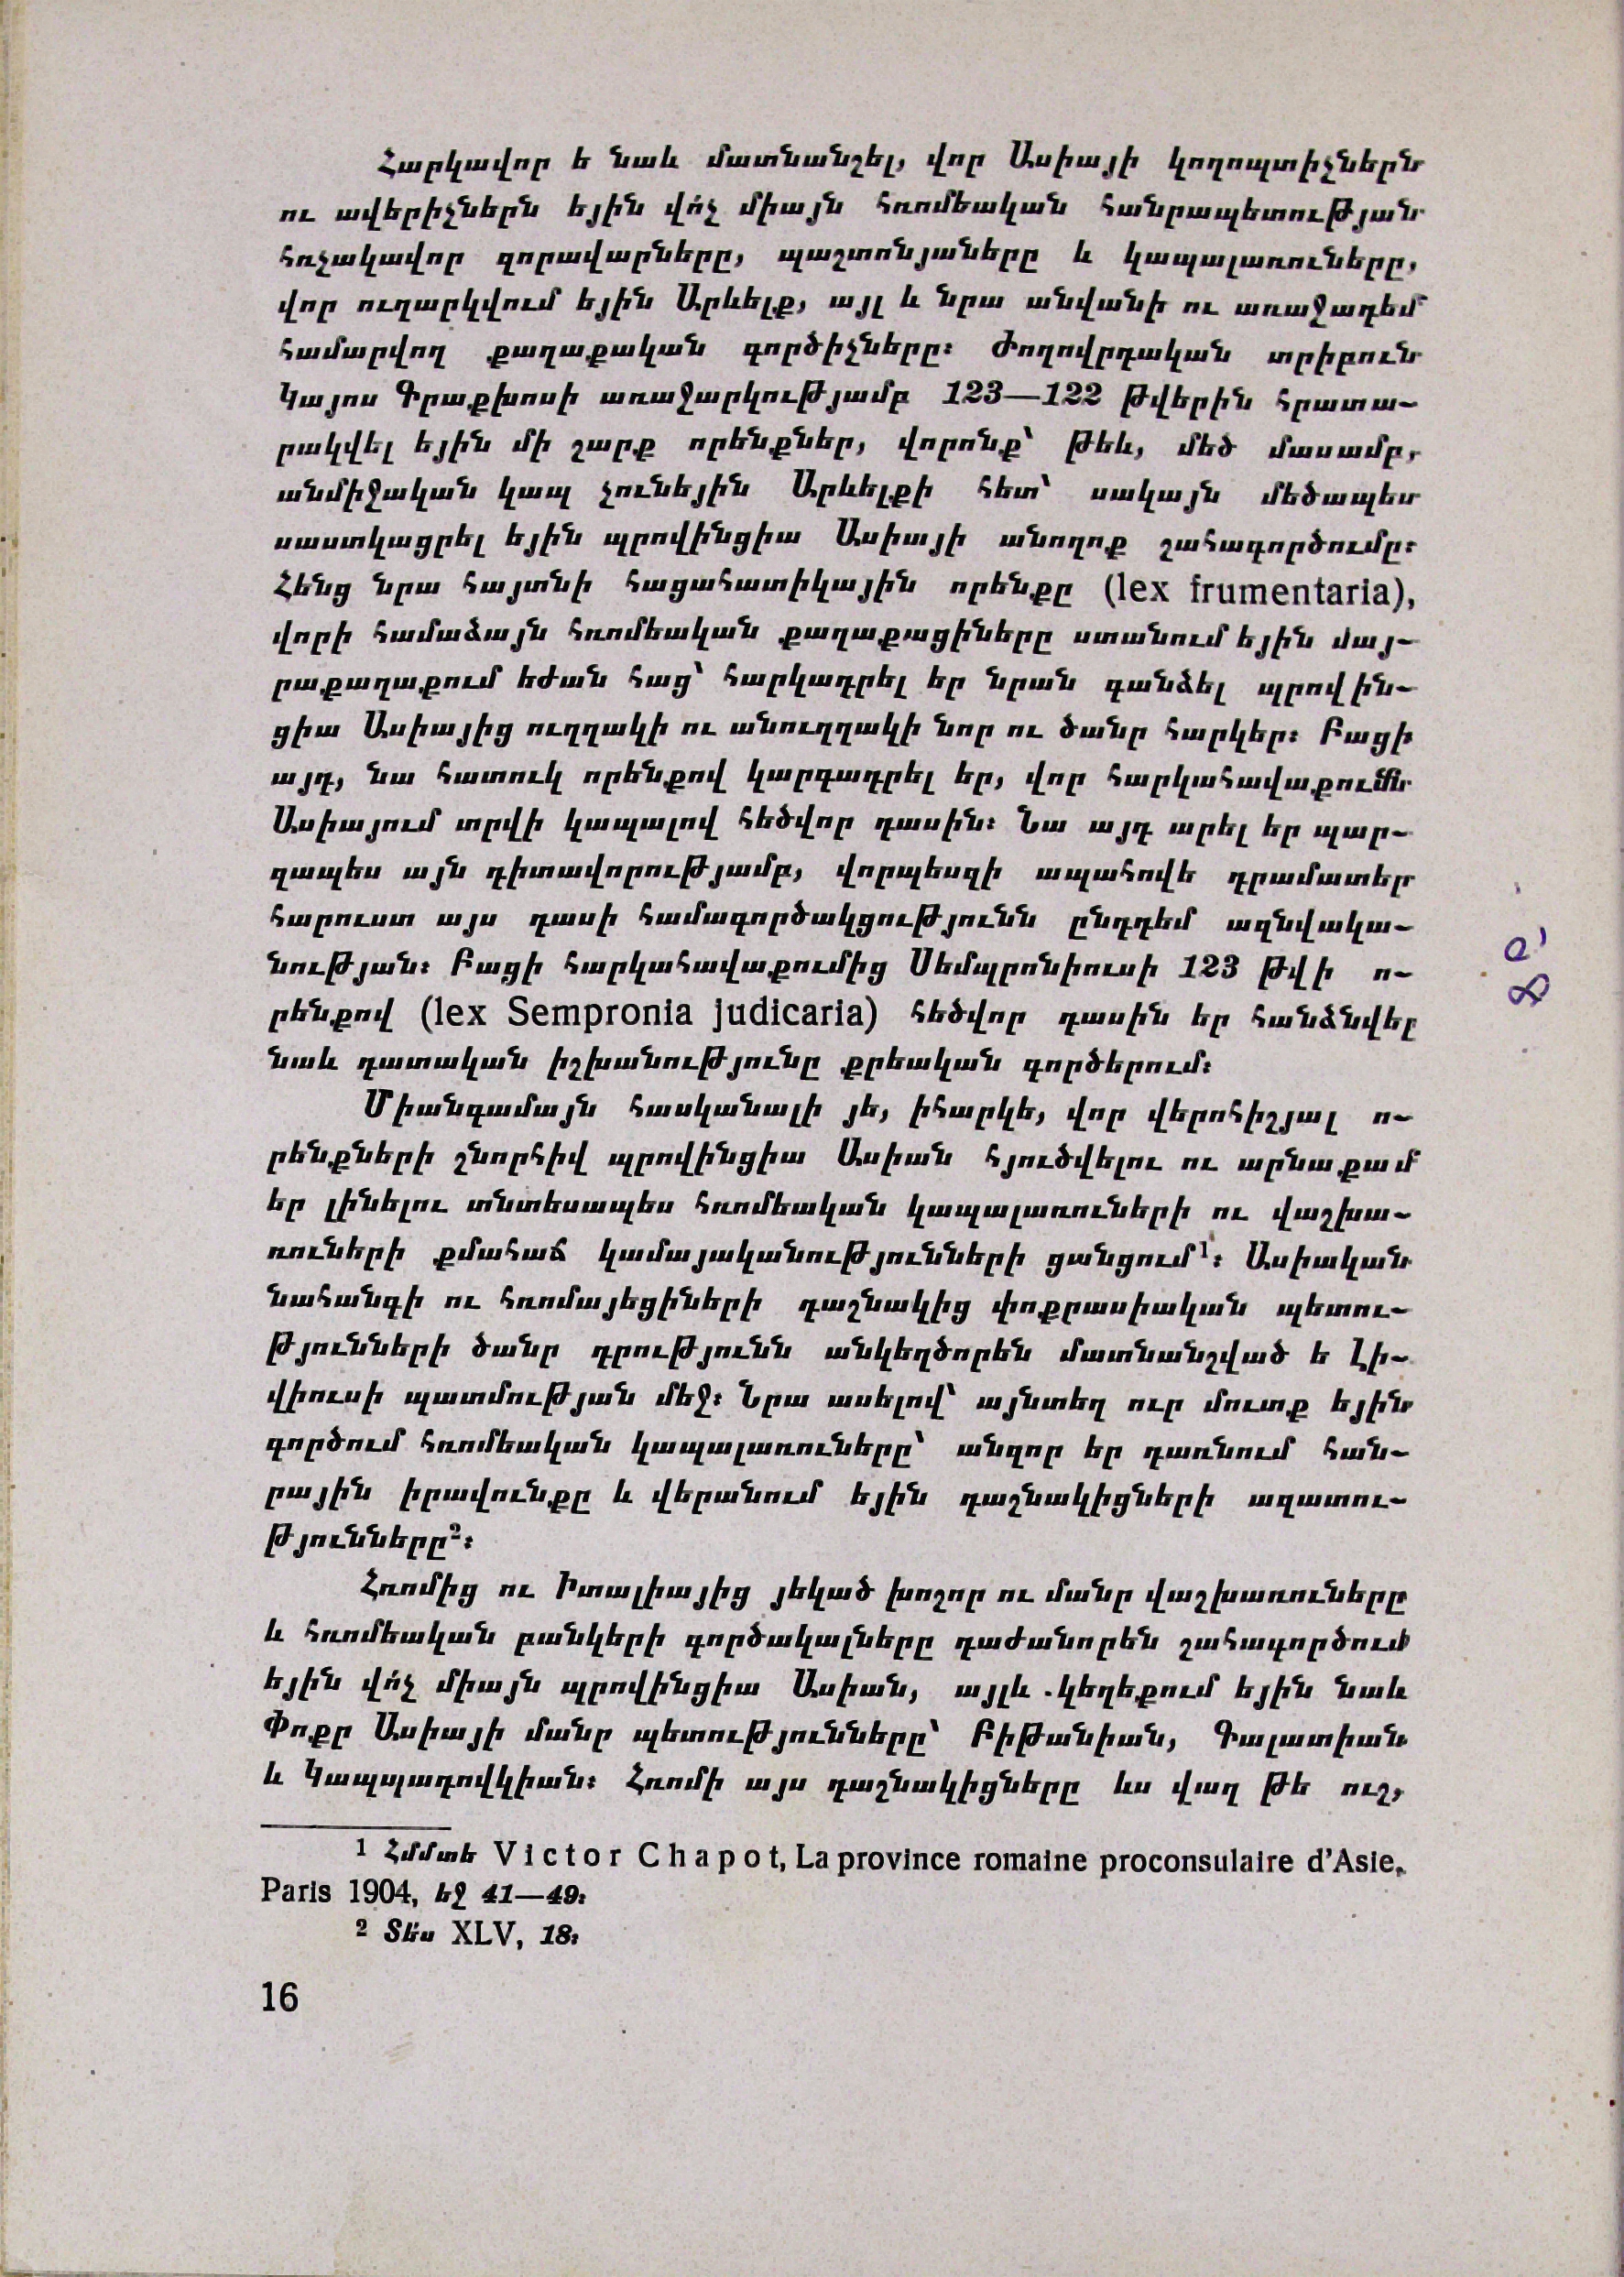 Հարկավոր ե նաև մատնանշել, վոր Ասիայի կողոպտիչներն
ու ավերիչներն եյին վո՛չ միայն հռոմեական հանրապետության
հռչակավոր զորավարները, պաշտոնյաները և կապալառուները,
վոր ուղարկվում եյին Արևելք, այլ և նրա անվանի ու առաջադեմ
համարվող քաղաքական գործիչները։ Ժողովրդական տրիբուն
Կայոս Գրաքխոսի առաջարկությամբ 123—122 թվերին հրատա-
րակվել եյին մի շարք որենքներ, վորոնք՝ թեև, մեծ մասամբ,
անմիջական կապ չունեյին Արևելքի հետ՝ սակայն մեծապես
սաստկացրել եյին պրովինցիա Ասիայի անողոք շահագործումը։
Հենց նրա հայտնի հացահատիկային որենքը (lex frumentaria),
վորի համաձայն հռոմեական քաղաքացիները ստանում եյին մայ-
րաքաղաքում եժան հաց՝ հարկադրել եր նրան գանձել պրովին-
ցիա Ասիայից ուղղակի ու անուղղակի նոր ու ծանր հարկեր։ Բացի
այդ, նա հատուկ որենքով կարգադրել եր, վոր հարկահավաքումն
Ասիայում տրվի կապալով հեծվոր դասին։ Նա այդ արել եր պար-
զապես այն դիտավորությամբ, վորպեսզի ապահովե դրամատեր
հարուստ այս դասի համագործակցությունն ընդդեմ ազնվակա-
նության։ Բացի հարկահավաքումից Սեմպրոնիուսի 123 թվի ո-
րենքով (lex Sempronia judicaria) հեծվոր դասին եր հանձնվել
նաև դատական իշխանությունը քրեական գործերում։
Միանգամայն հասկանալի յե, իհարկե, վոր վերոհիշյալ ո-
րենքների շնորհիվ պրովինցիա Ասիան հյուծվելու ու արնաքամ
եր լինելու տնտեսապես հռոմեական կապալառուների ու վաշխա-
ռուների քմահաճ կամայականությունների ցանցում¹։ Ասիական
նահանգի ու հռոմայեցիների դաշնակից փոքրասիական պետու-
թյունների ծանր դրությունն անկեղծորեն մատնանշված ե Լի-
վիուսի պատմության մեջ։ Նրա ասելով՝ այնտեղ ուր մուտք եյին
գործում հռոմեական կապալառուները՝ անզոր եր դառնում հան-
րային իրավունքը և վերանում եյին դաշնակիցների ազատու-
թյունները²։
Հռոմից ու Իտալիայից յեկած խոշոր ու մանր վաշխառուները
և հռոմեական բանկերի գործակալները դաժանորեն շահագործում
եյին վո՛չ միայն պրովինցիա Ասիան, այլև կեղեքում եյին նաև
Փոքր Ասիայի մանր պետությունները՝ Բիթանիան, Գալատիան
և Կապպադովկիան։ Հռոմի այս դաշնակիցները ևս վաղ թե ուշ,
1 Հմմտե Victor Chapot, La province romaine proconsulaire d’Asie,
Paris 1904, եջ 41—49։
2 Տե՛ս XLV, 18։
16